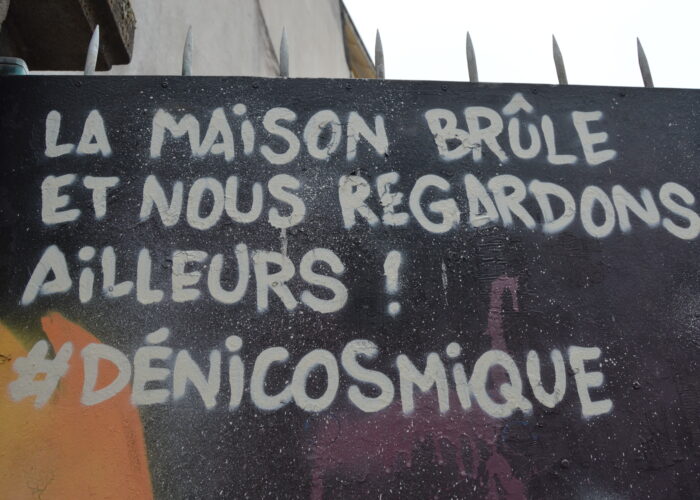 LA MAiSON BRÛLE
ET NOUS REGARDONS
AiLLEURS !
#DÉNiCOSMiQUE